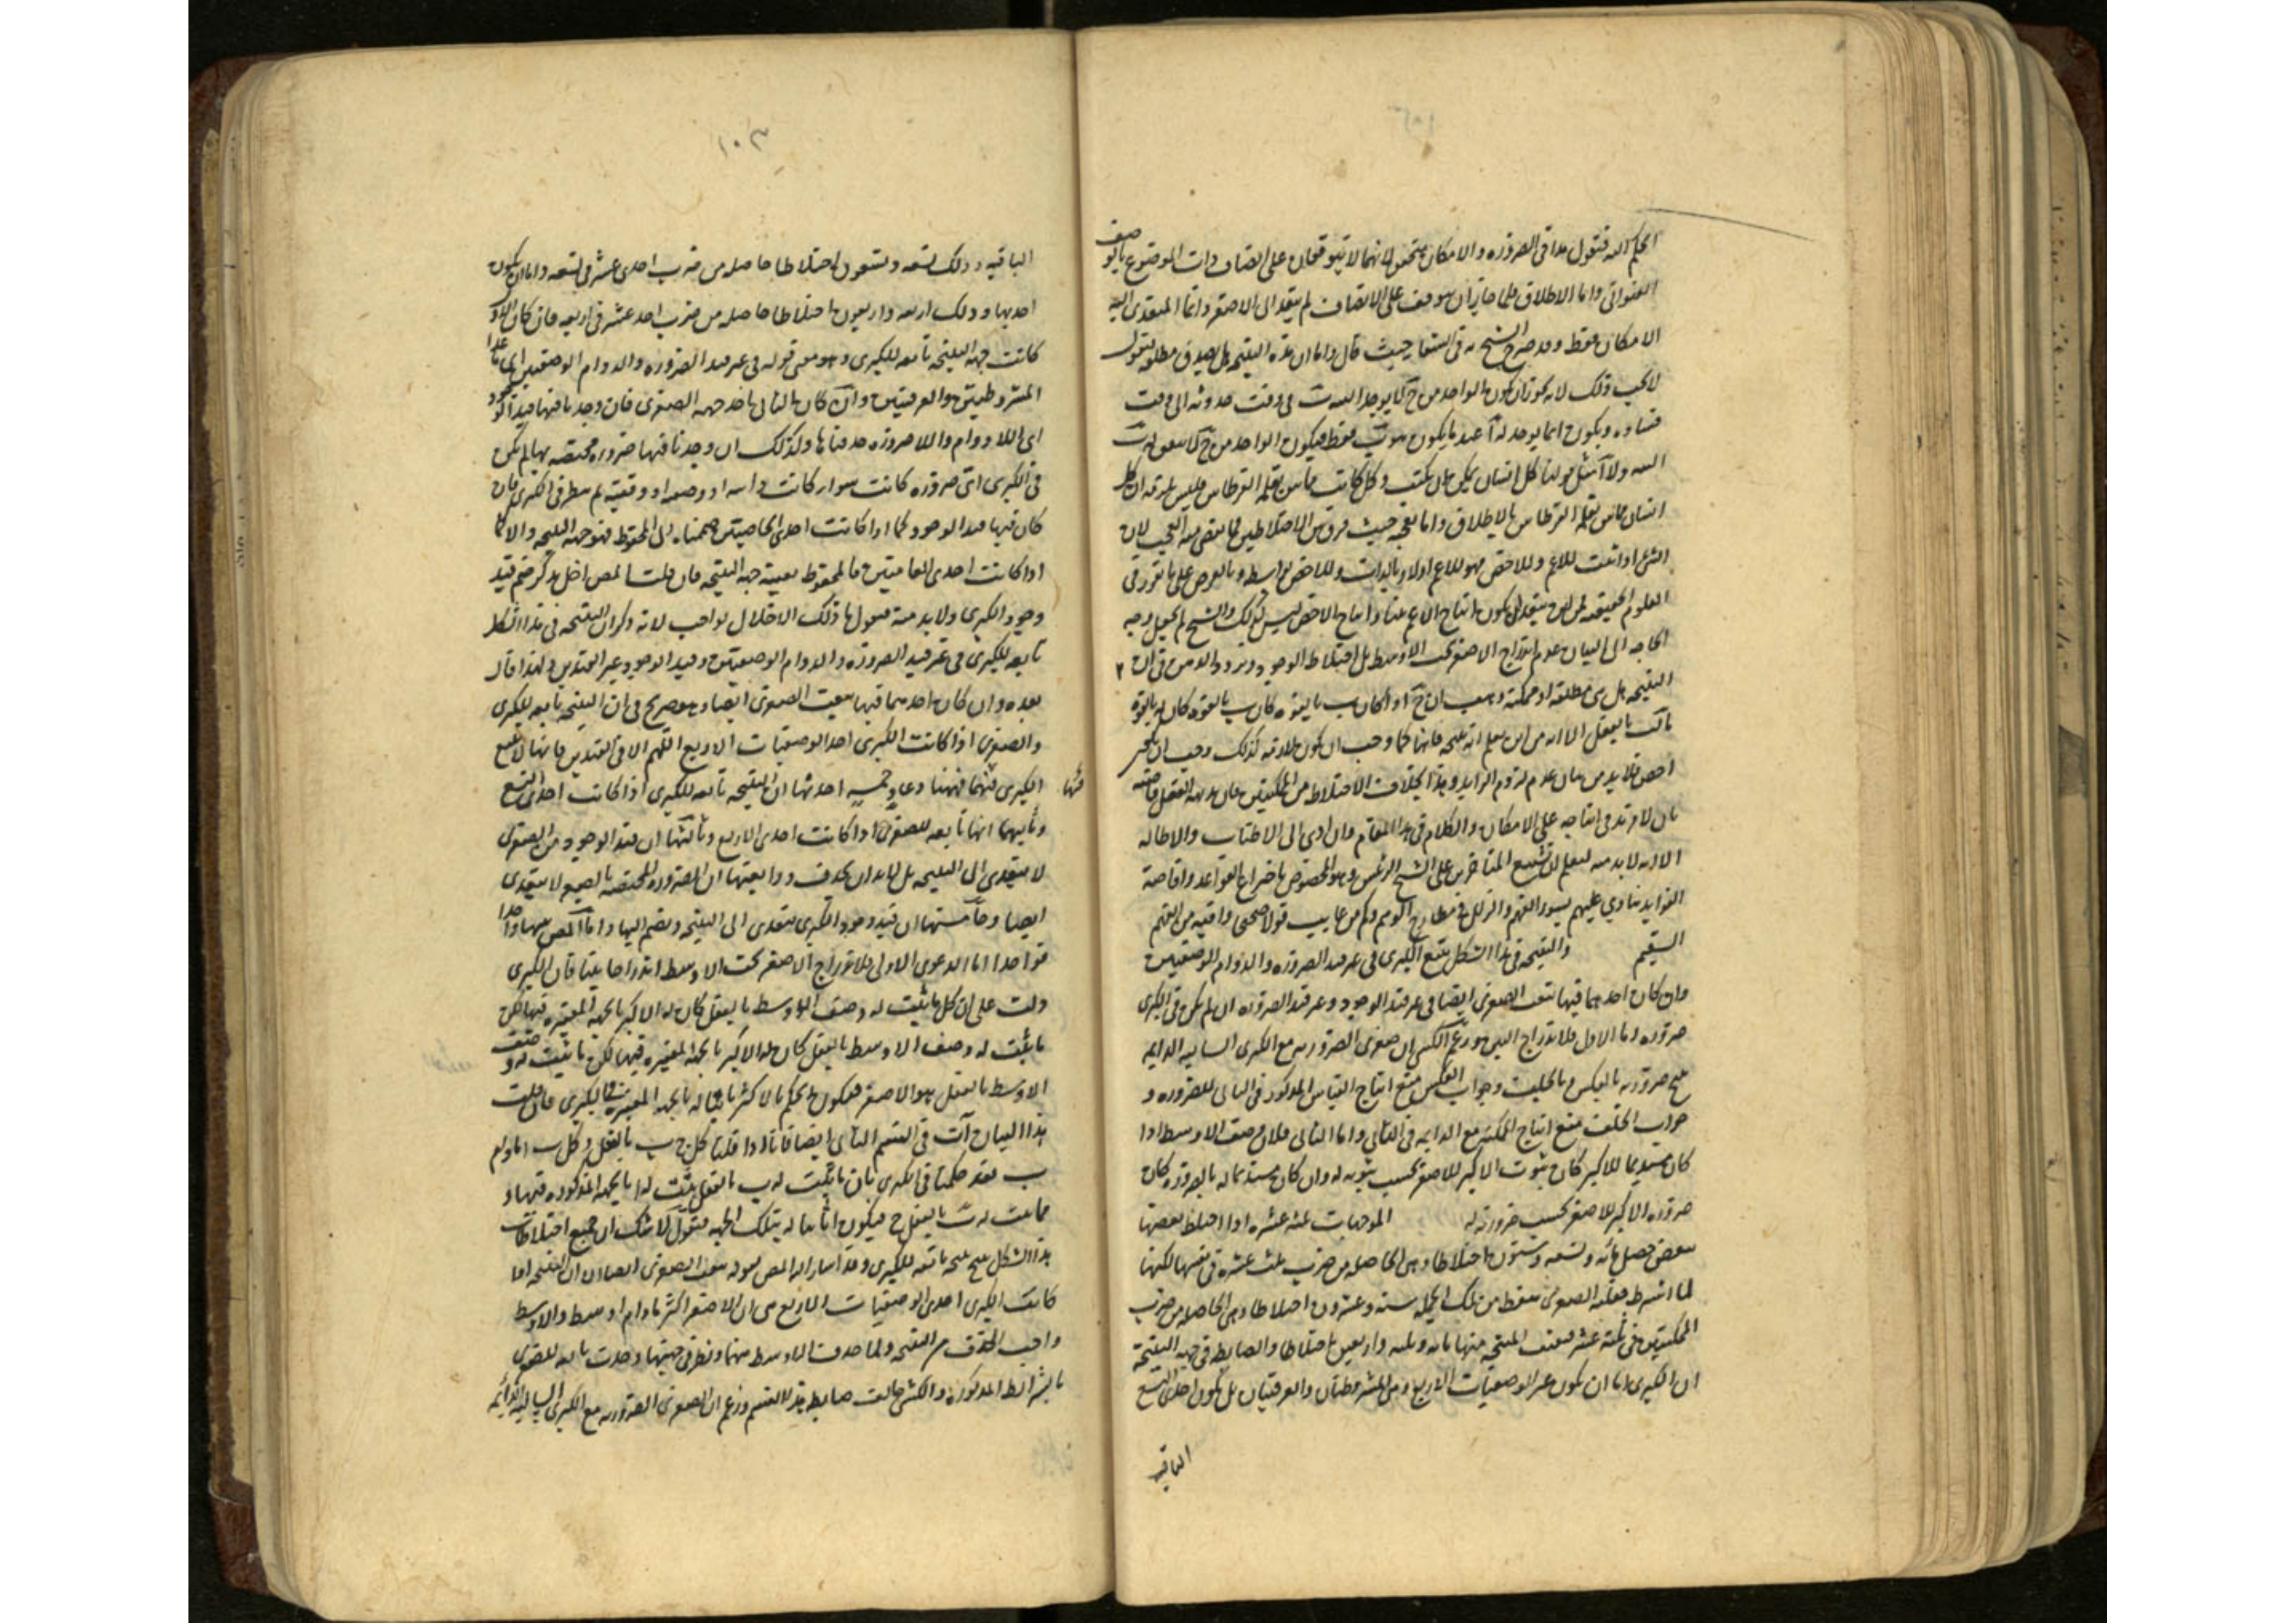 الحكم اليه فنقول هذا فى الضروره والامكان متحقق لانهما لا يتوقفان على اتصاف ذات الموضوع بالوصف
العنوانى واما الاطلاق فلما جاز ان يتوقف على الاتصاف لم يتعد الى الاصغر وانما المتعدى اليه
الامكان فقط وقد صرح الشيخ به فى الشفا حيث قال واما ان هذه النتيجه هل يصدق مطلقه فنقول
لا يجب ذلك لانه يجوز ان يكون الواحد من ج لا يوجد البته ب فى وقت حدوثه الى وقت
فساده ويكون انما يوجد له آ عند ما يكون ب فقط فيكون الواحد من ج
البته ولا آ مثل قولنا كل انسان يمكن ان يكتب وكل كاتب مماس بقلمه القرطاس فليس يلزم ان كل
انسان مماس بقلمه القرطاس بالاطلاق واما تعجبه حيث فرق بين الاختلاطين فمما يقضى منه العجب لان
الشئ اذا ثبت للاعم وللاخص فهو للاعم اولا وبالذات وللاخص بواسطه وبالعرض على ما تقرر فى
العلوم الحقيقيه يكون انتاج الاعم بينا وانتاج الاخص ليس كذلك والشيخ لم يجعل وجه
الحاجه الى البيان عدم اندراج الاصغر تحت الاوسط بل اختلاط الوجود وتردد الذهن فى ان
النتيجه هل هى مطلقه او ممكنه وهب ان ج اذا كان ب بالقوه كان ب بالقوه كان له بالقوه
بالفعل الا انه من اين يعلم انه نتيجه فانها كما وجب ان يكون لازمه كذلك وجب ان
اخص فلا بد من بيان عدم لزوم الزايد وهذا بخلاف الاختلاط من الممكنتين فان بديهه العقل قاضيه
بان لا مزيد فى انتاجه على الامكان والكلام فى هذا المقام وان ادى الى الاطناب والاطاله
الا انه لا بد منه ليعلم ان تشنيع المتاخرين على الشيخ الرئيس وهو المخصوص باختراع القواعد وافاضه
الفوايد ينادى عليهم بسوء الفهم والزلل فى مطارح الوهم وكم من عايب قولا صحيحا وافته من الفهم
السقيم والنتيجه فى هذا الشكل يتبع الكبرى فى غير قيد الضروره والدوام الوصفيين
وان كان احدهما فيها تتبع الصغرى ايضا فى غير قيد الوجود وغير قيد الضروره ان لم يكن فى الكبرى
ضروره اما الاول فلاندراج البين وزعم الكشى ان صغرى الضروريه مع الكبرى السالبه الدايمه
ينتج ضروريه بالعكس وبالخلف وجواب العكس منع انتاج القياس المذكور فى الثانى للضروره و
جواب الخلف منع انتاج الممكنه مع الدايمه فى الثانى واما الثانى فلان وصف الاوسط اذا
كان مستديما للاكبر كان ثبوت الاكبر للاصغر بحسب ثبوته له وان كان مستديما له بالضروره كان
ضروره الاكبر للاصغر بحسب ضرورته له الموجهات ثلثه عشره اذا اختلط بعضها
ببعض حصل مائه وتسعه وستون اختلاطا وهى الحاصله من ضرب ثلث عشره فى نفسها لكنها
لما اشترط فعليه الصغرى سقط من تلك الجمله سته وعشرون اختلاطا وهى الحاصله من ضرب
الممكنتين فى ثلثه عشر فبقيت المنتجه منها مائه وثلثه واربعين اختلاطا والضابط فى جهه النتيجه
ان الكبرى اما ان تكون غير الوصفيات الاربع وهى المشروطتان والعرفيتان بل تكون احدى التسع
الباقيه
١٠٣
الباقيه وذلك تسعه وتسعون اختلاطا حاصله من ضرب احدى عشر فى تسعه واما ان تكون
احديها وذلك اربعه واربعون اختلاطا حاصله من ضرب احد عشر فى اربعه فان كان الاول
كانت جهه النتيجه تابعه للكبرى وهو معنى قوله فى غير قيد الضروره والدوام الوصفيين اى ما عدا
المشروطتين والعرفيتين وان كان الثانى ناخذ جهه الصغرى فان وجدنا فيها قيد الوجود
اى اللادوام واللاضروره حذفناها وكذلك ان وجدنا فيها ضروره مختصه بها لم يكن
فى الكبرى اى ضروره كانت سوا كانت ذاتيه او وصفيه او وقتيه ثم ننظر فى الكبرى فان
كان فيها قيد الوجود كما اذا كانت احدى الخاصتين ضممناه الى المحفوظ فهو جهه النتيجه والا كما
اذا كانت احدى العامتين فالمحفوظ بعينه جهه النتيجه فان قلت المص اخل بذكر ضم قيد
وجود الكبرى ولا بد منه فنقول ما ذلك الاخلال بواجب لانه ذكر ان النتيجه فى هذا الشكل
تابعه للكبرى فى غير قيد الضروره والدوام الوصفيتين وقيد الوجود غير القيدين ولهذا قال
بعده وان كان احدهما فيها تبعت الصغرى ايضا وهو صريح فى ان النتيجه تابعه للكبرى
والصغرى اذا كانت الكبرى احد الوصفيات الاربع اللهم الا فى القيدين فانها لا تتبع
الكبرى فيهما فههنا دعاو خمسه احدها ان النتيجه تابعه للكبرى اذا كانت احدى التسع
وثانيهما انها تابعه للصغرى اذا كانت احدى الاربع وثالثها ان قيد الوجود من الصغرى
لا يتعدى الى النتيجه بل لا بد ان يحذف ورابعتها ان الضروره المختصه بالصغرى لا يتعدى
ايضا وخامستها ان قيد وجود الكبرى يتعدى الى النتيجه وينضم اليها وانا المص بينها واحدا
فواحدا اما الدعوى الاولى فلاندراج الاصغر تحت الاوسط اندراجا بينا فان الكبرى
دلت على ان كل ما يثبت له وصف الاوسط بالفعل كان له الاكبر بالجهه المعتبره فيها لكن
ما يثبت له وصف الاوسط بالفعل كان له الاكبر بالجهه المعتبره فيها لكن ما يثبت له وصف
الاوسط بالفعل هو الاصغر فيكون الحكم بالاكبر ثابتا له بالجهه المعتبره فى الكبرى فان قلت
هذا البيان آت فى القسم الثانى ايضا فانا اذا قلنا كل ج ب بالفعل وكل ب ا ما دام
ب فقد حكمنا فى الكبرى بان ما يثبت له ب بالفعل يثبت له ا بالجهه المذكوره فيها و
مما يثبت له ب بالفعل ج فيكون ا ثابتا له بتلك الجهه فنقول لا شك ان جميع اختلاطات
هذا الشكل ينتج نتيجه تابعه للكبرى وقد اشار اليه المص بقوله تبعت الصغرى ايضا الا ان النتيجه اذا
كانت الكبرى احدى الوصفيات الاربع هى ان الاصغر اكبر ما دام اوسط والاوسط
واجب الحذف من النتيجه ولما حذف الاوسط منها ونظر فى جهتها وجدت تابعه للصغرى
بالشرائط المذكوره والكشى خالف ضابط هذا القسم وزعم ان الصغرى الضروريه مع الكبرى السالبه الدايمه